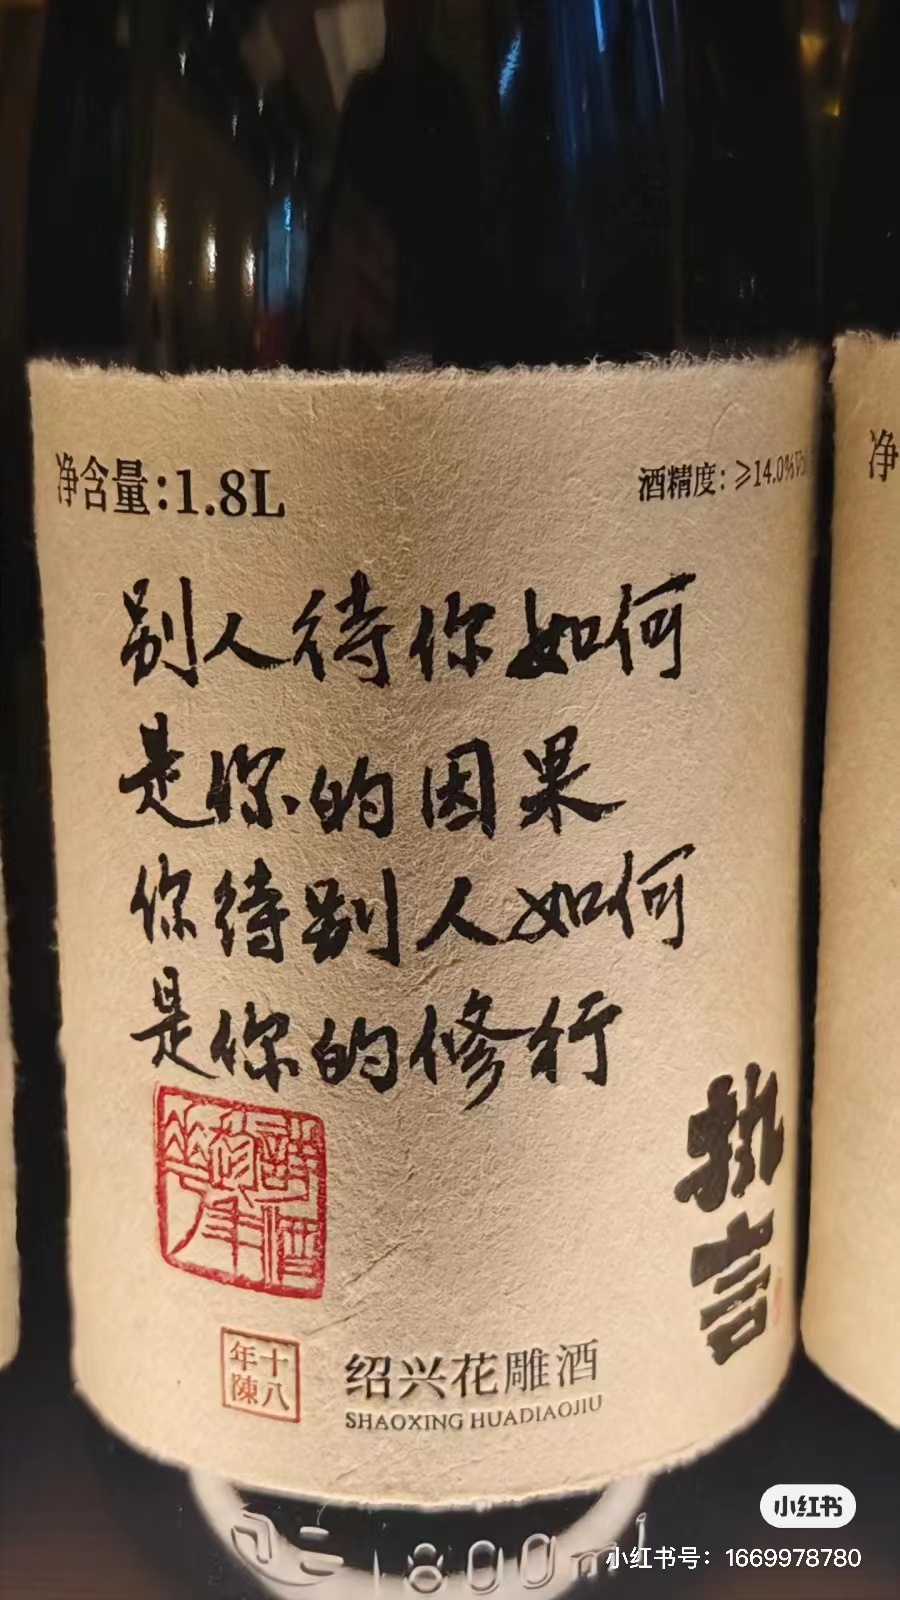 净含量:1.8L
酒精度:≥14.0%Vol
净
别人待你如何
是你的因果
你待别人如何
是你的修行
执言
十八
年陳
绍兴花雕酒
SHAOXING HUADIAOJIU
1800ml
小红书
小红书号：1669978780